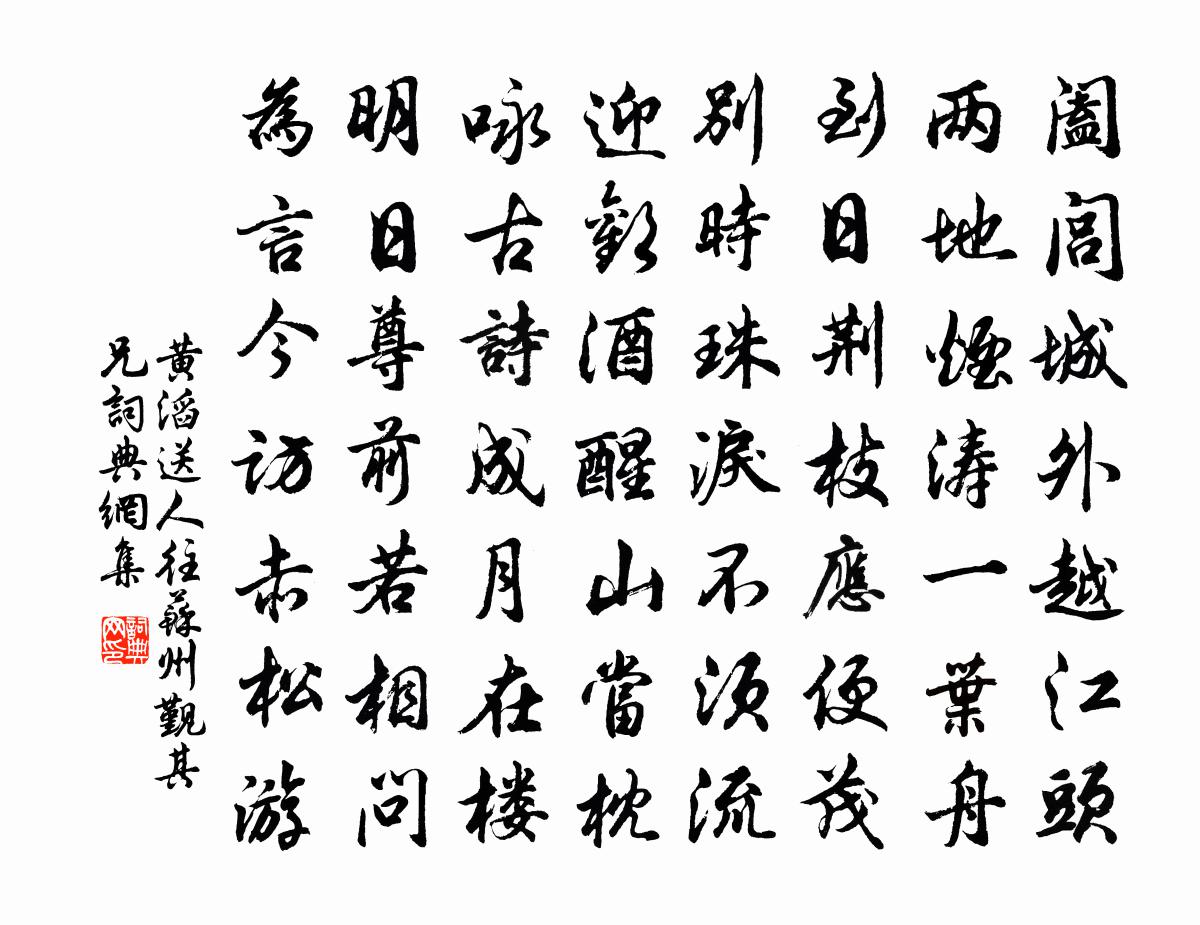 阖闾城外越江頭
两地煙涛一葉舟
到日荆枝應便茂
别時珠淚不須流
迎歡酒醒山當枕
咏古詩成月在楼
明日尊前若相問
為言今訪赤松游
黄滔送人往蘇州觐其
兄詞典網集
詞典网印